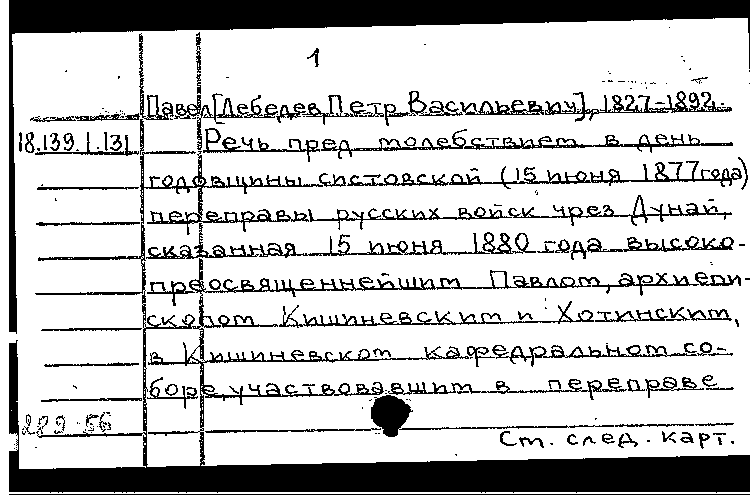 1
Павел [Лебедев, Петр Васильевич], 1827-1892.
18.139.1.131 Речь пред молебствием в день
годовщины систовской (15 июня 1877 года)
переправы русских войск чрез Дунай,
сказанная 15 июня 1880 года высоко-
преосвященнейшим Павлом, архиепи-
скопом Кишиневским и Хотинским,
в Кишиневском кафедральном со-
боре, участвовавшим в переправе
289-56
См. след. карт.